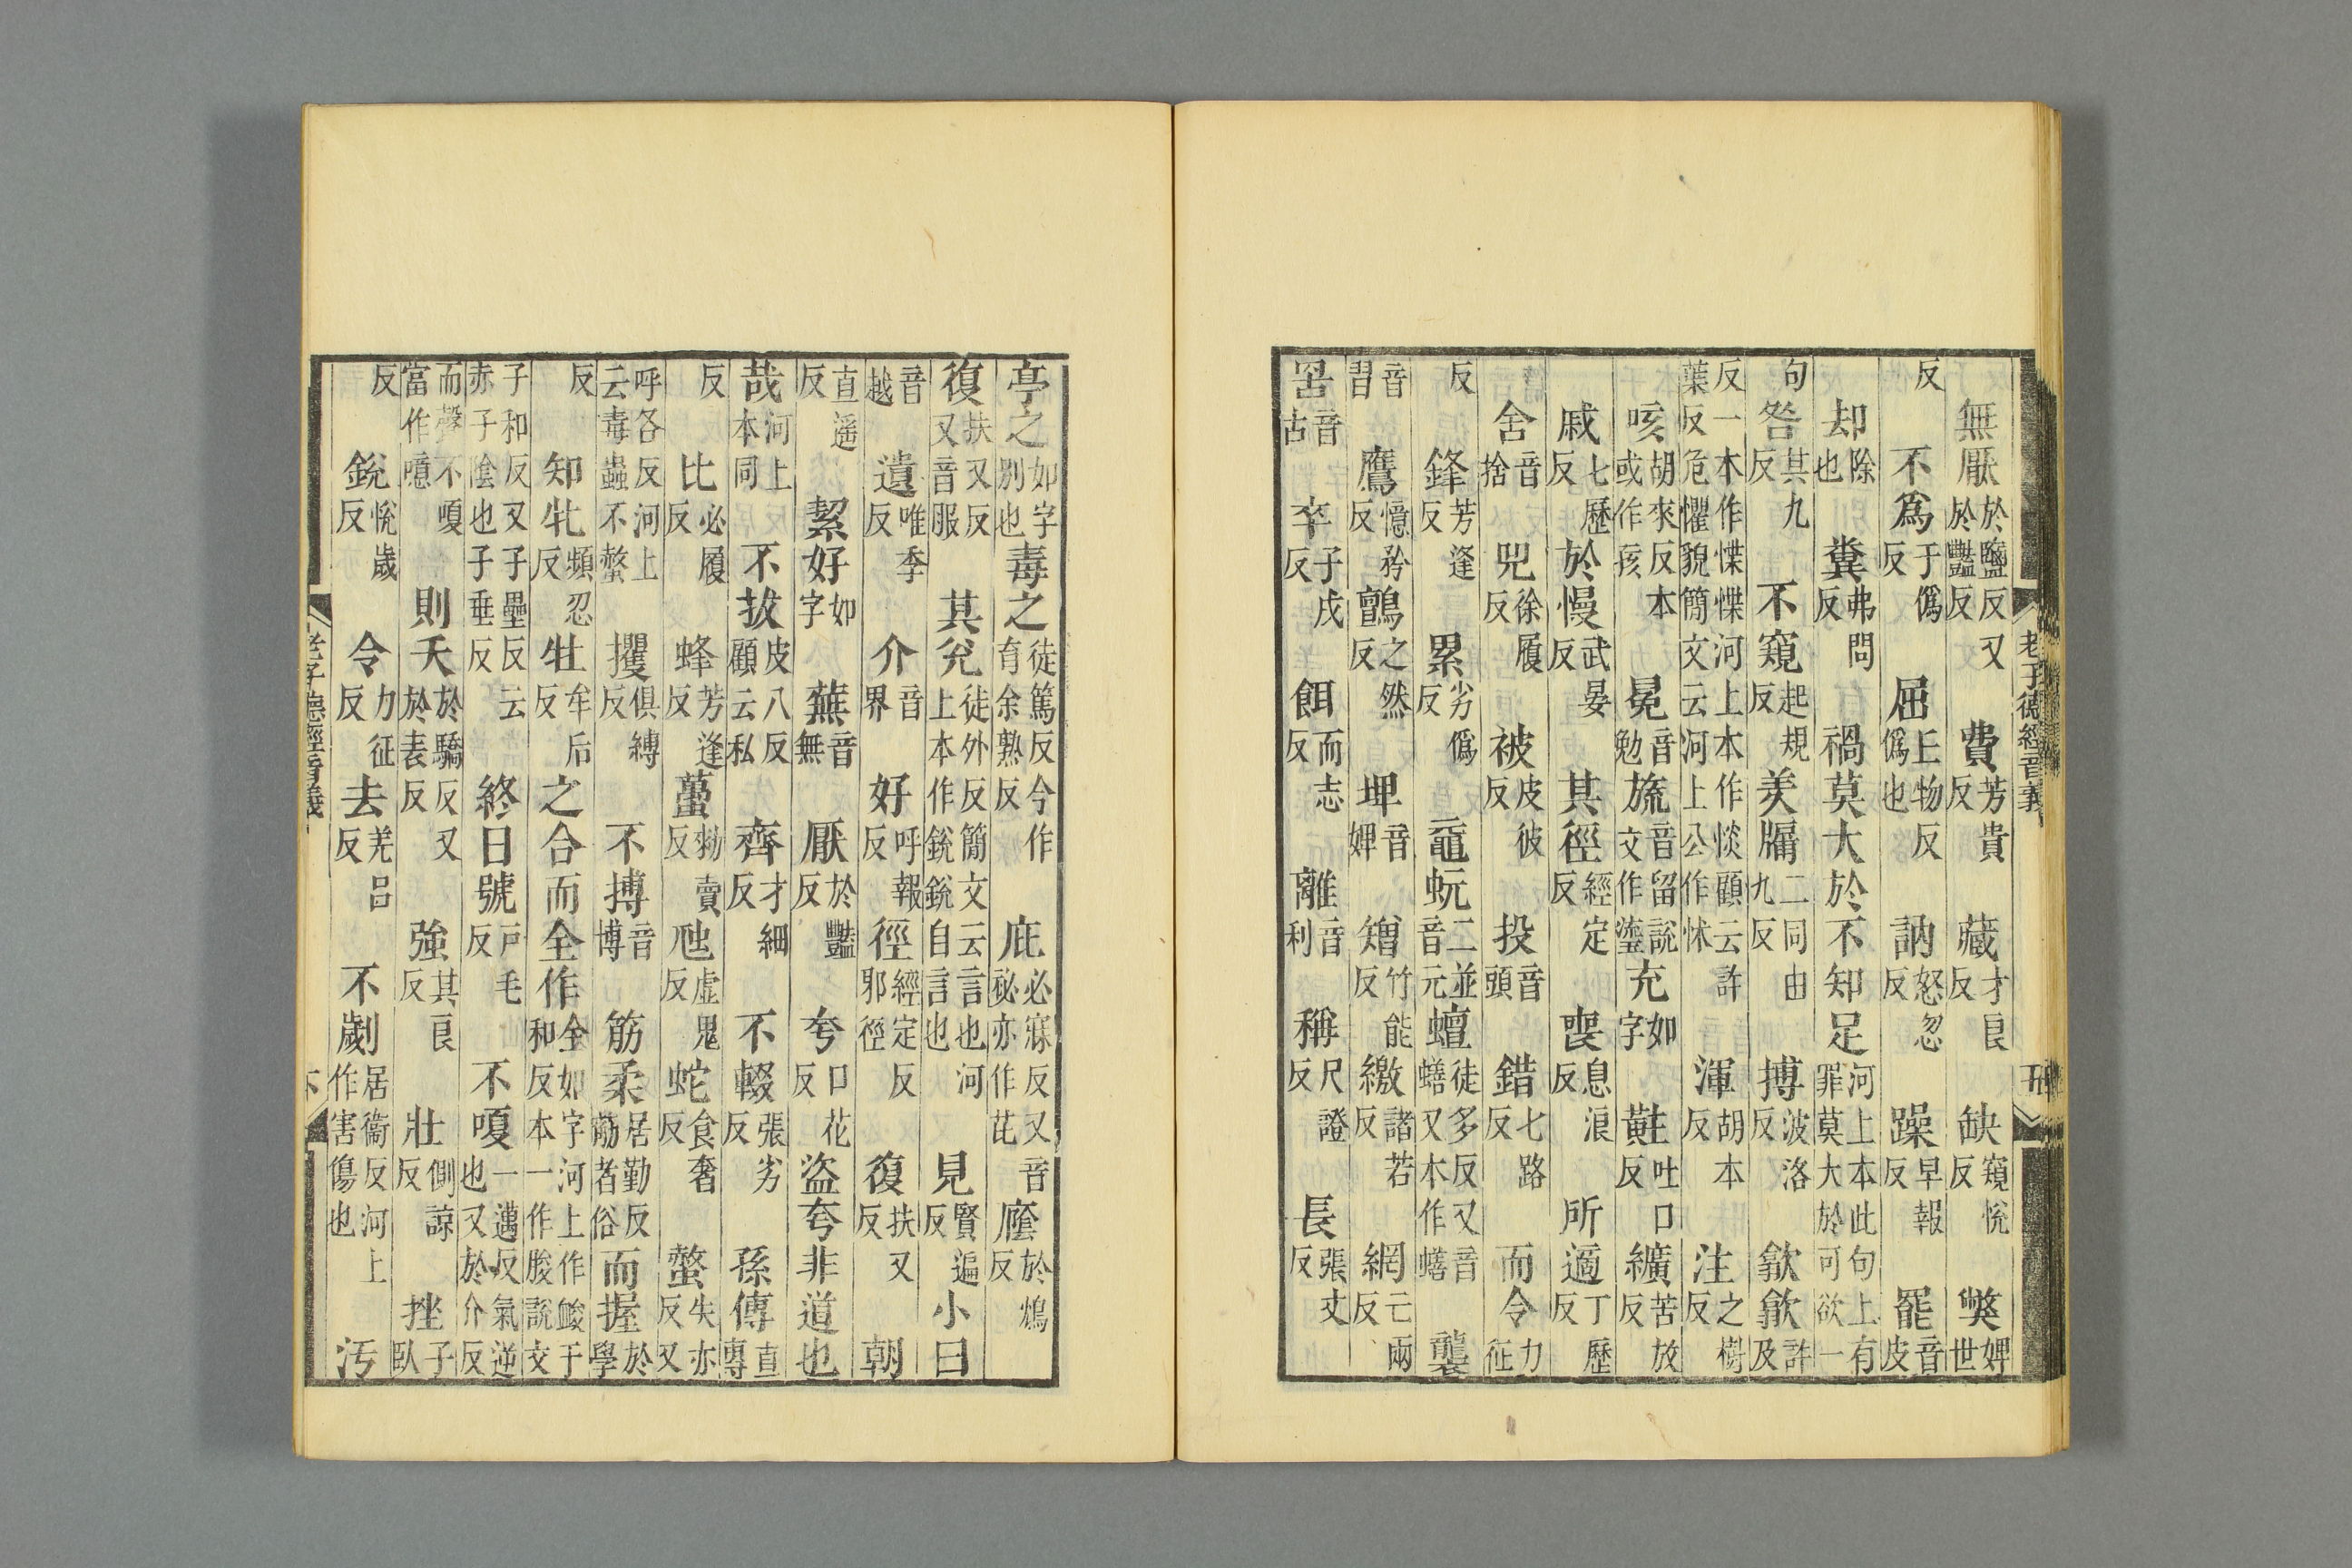 無厭於鹽反又於豔反費芳貴反藏才良反缺窺悅反獘婢世
反不爲于僞反屈上物反僞也訥怒忽反躁早報反罷音皮
却除也糞弗問反禍莫大於不知足河上本此句上有罪莫大於可欲一
句咎其九反不窺起規反羑牖二同由九反搏波洛反歙歙許及
反一本作惵惵河上本作惔顧云許葉反危懼貌簡文云河上公作怵渾胡本反注之樹反
咳胡來反本或作孩冕音勉旒音留說文作瑬充如字黈吐口反纊苦放反
戚七歷反於慢武晏反其徑經定反喪息浪反所適丁歷反
舍音捨兕徐履反被皮彼反投音頭錯七路反而令力征
反鋒芳逢反累劣僞反黿蚖二並音元蟺徒多反又音蟮又本作蟮襲
音習鷹憶矜反鸇之然反埤音婢矰竹能反繳諸若反網亡兩反
罟音古卒子戌反餌而志反離音利稱尺證反長張丈反
老子德經音義
亭之如字別也毒之徒篤反今作育余熟反庇必寐反又作芘音祕亦廕於鴆反
復扶又反又音服其兌徒外反簡文云言也河上本作銳銳自言也見賢遍反小曰
音越遺唯季反介音界好呼報反徑經定反邪徑復扶又反朝
直遥反絜好如字蕪音無厭於豔反夸口花反盜夸非道也
哉河上本同不拔皮八反顧云私齊才細反不輟張劣反孫傳直專
反比必履反蜂芳逢反蠆勑賣反虺虛鬼反蛇食奢反螫失亦反又
呼各反河上云毒蟲不螫攫俱縛反不搏音博筋柔居勤反䈥者俗而握於學
反知牝頻忍反牡牟后反之合而全作全如字河上作㕙于和反本一作朘說文
子和反又子壘反云赤子陰也子垂反終日號戶毛反不嗄一邁反氣逆也又於介反
而聲不嗄當作噫則夭於驕反又於表反強其良反壯側諒反挫子臥
反銳悅歲反令力征反去羌呂反不劌居衞反河上作害傷也污
老子德經音義